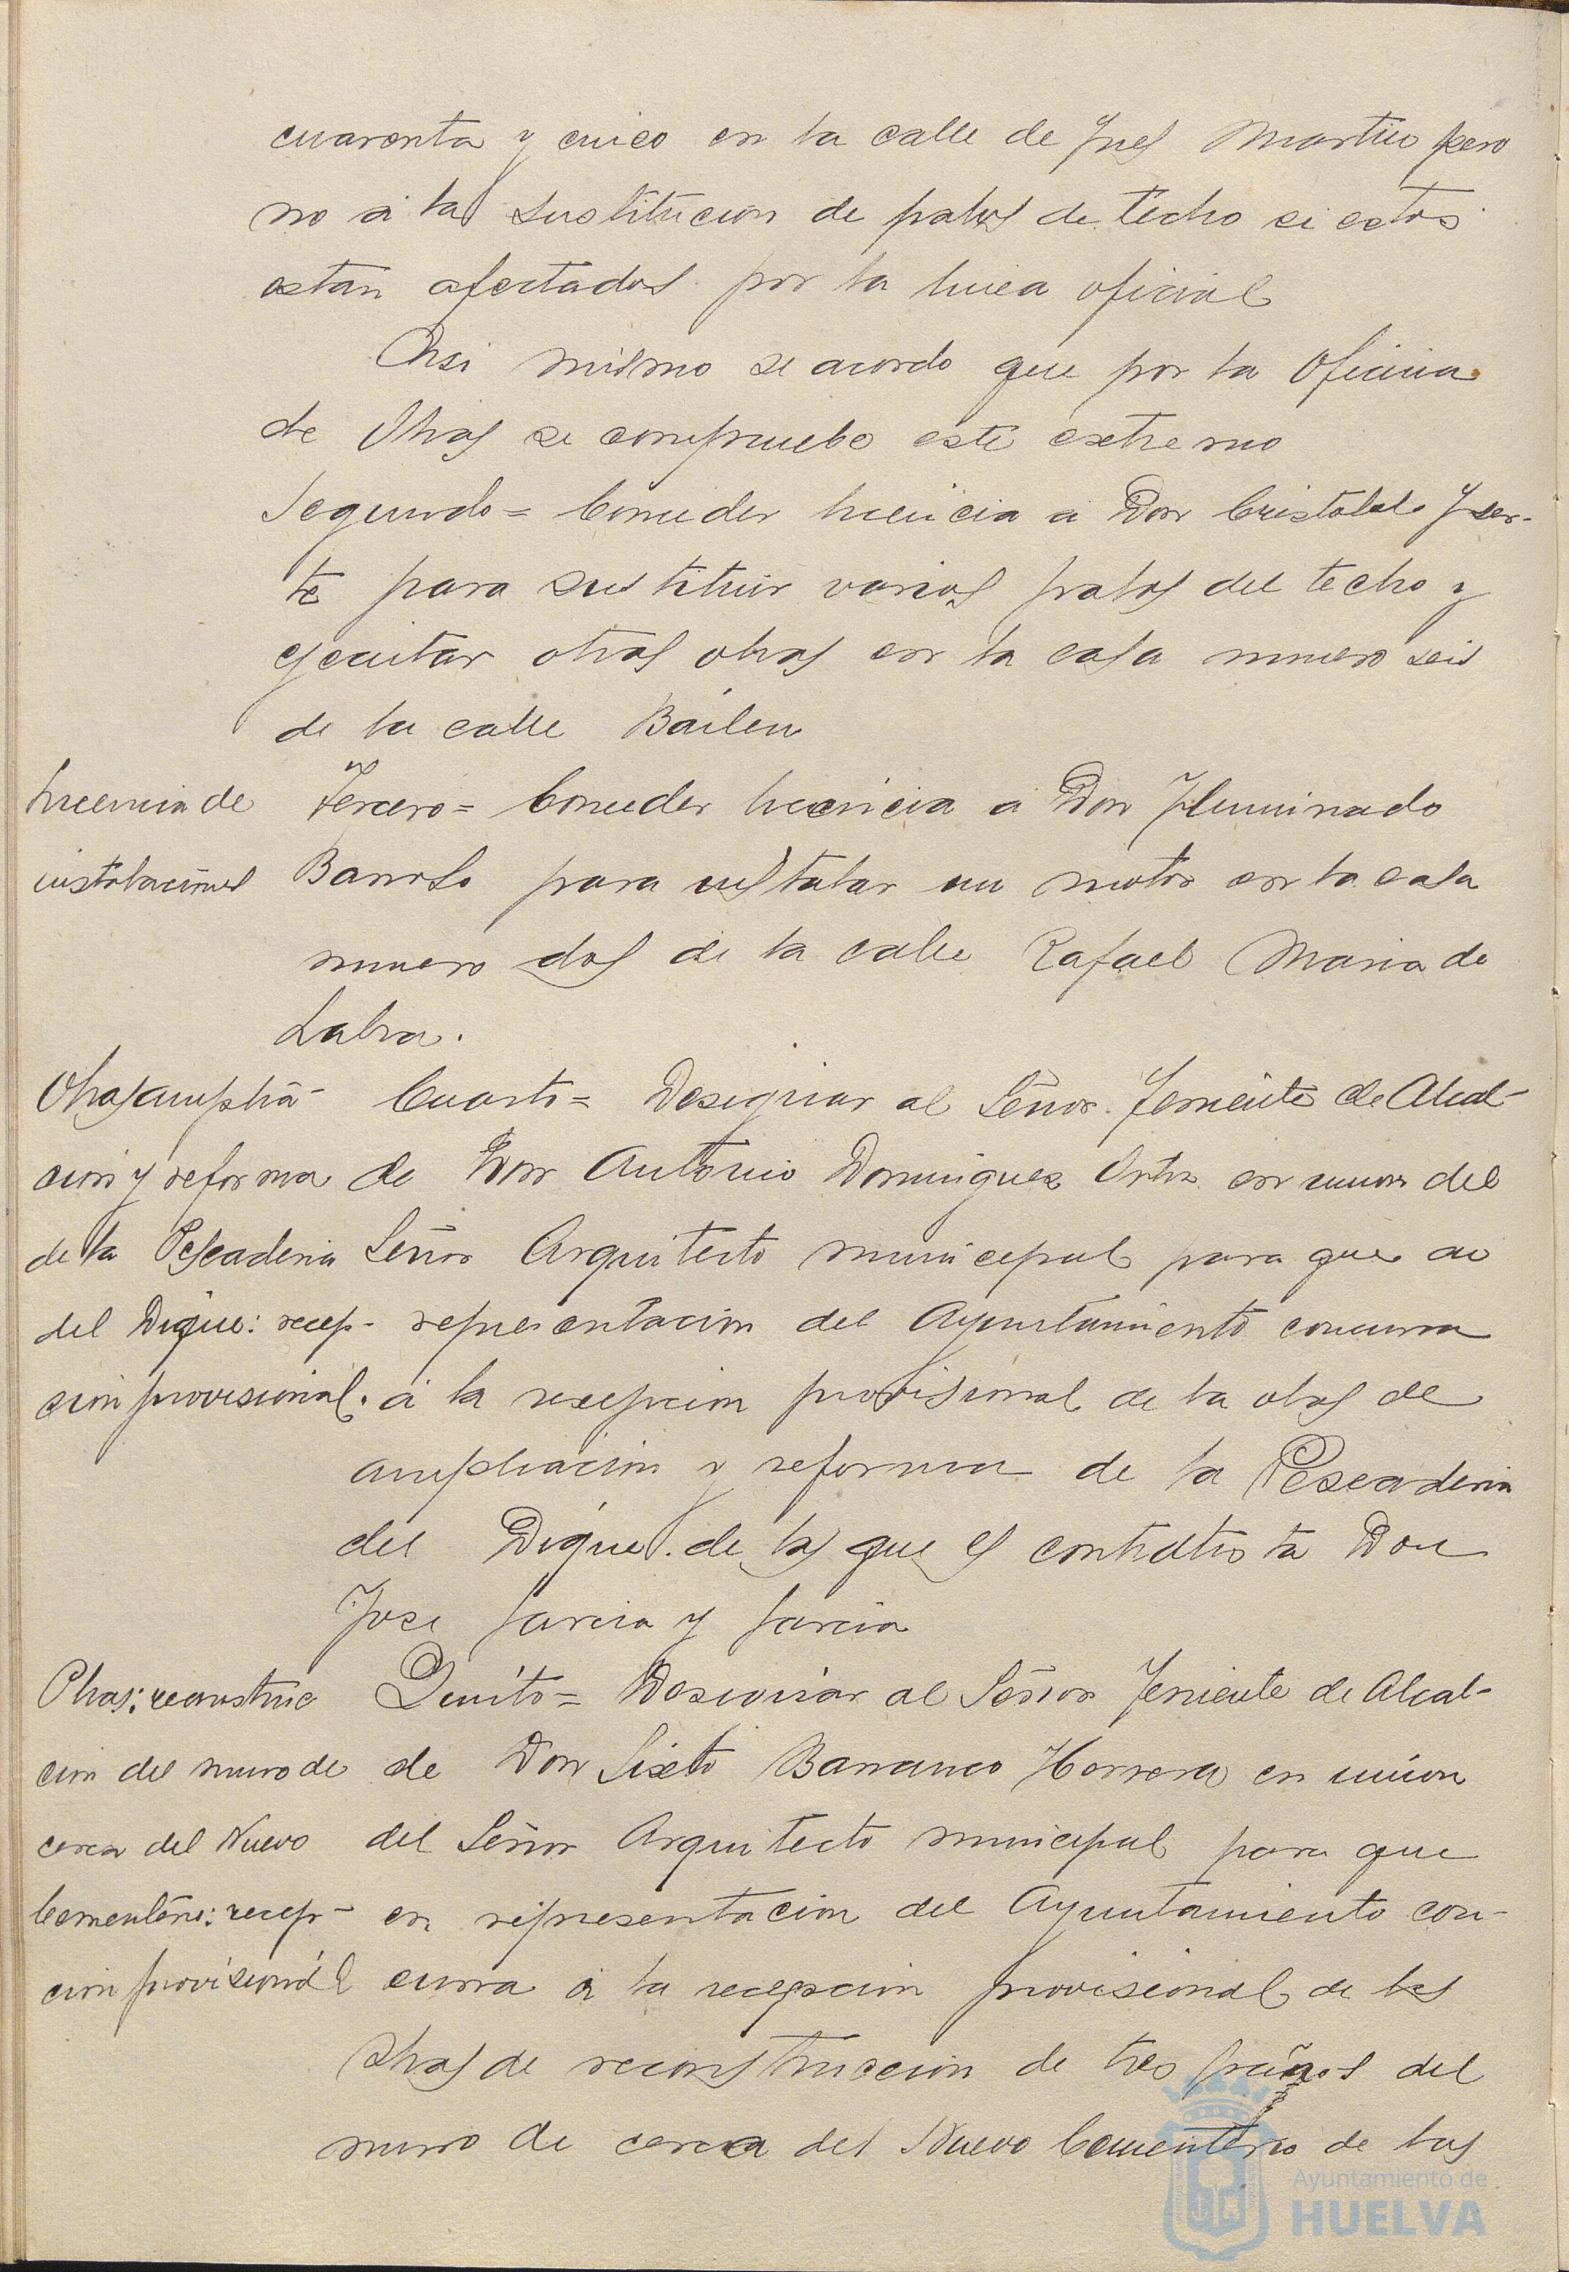 cuarenta y cinco en la calle de Fres Martin pero
no a la sustitucion de palos de techo si estos
estan afectados por la linea oficial
Asi mismo se acordo que por la Oficina
de Obras se compruebe este extremo
Segundo = Conceder licencia a Don Cristobal
te para sustituir varios palos del techo y
ejecutar otras obras en la casa numero seis
de la calle Bailen
Licencia de
instalaciones
Tercero = Conceder licencia a Don Iluminado
Barroso para instalar un motor en la casa
numero dos de la calle Rafael Maria de
Labra.
Obras amplia-
cion y reforma
de la Pescaderia
del Dique: recep-
cion provisional.
Cuarto = Designar al Señor Teniente de Alcal-
de Don Antonio Dominguez Ortiz en union del
Señor Arquitecto municipal para que en
representacion del Ayuntamiento concurra
a la recepcion provisional de la obras de
ampliacion y reforma de la Pescaderia
del Dique. de las que es contratista Don
Jose Garcia y Garcia
Obras: reconstruc
cion del muro de
cerca del Nuevo
Cementerio: recep-
cion provisional
Quinto = Designar al Señor Teniente de Alcal-
de Don Sixto Barranco Herrera en union
del Señor Arquitecto municipal para que
en representacion del Ayuntamiento con-
curra a la recepcion provisional de las
obras de reconstruccion de tres paños del
muro de cerca del Nuevo Cementerio de las
Ayuntamiento de
HUELVA